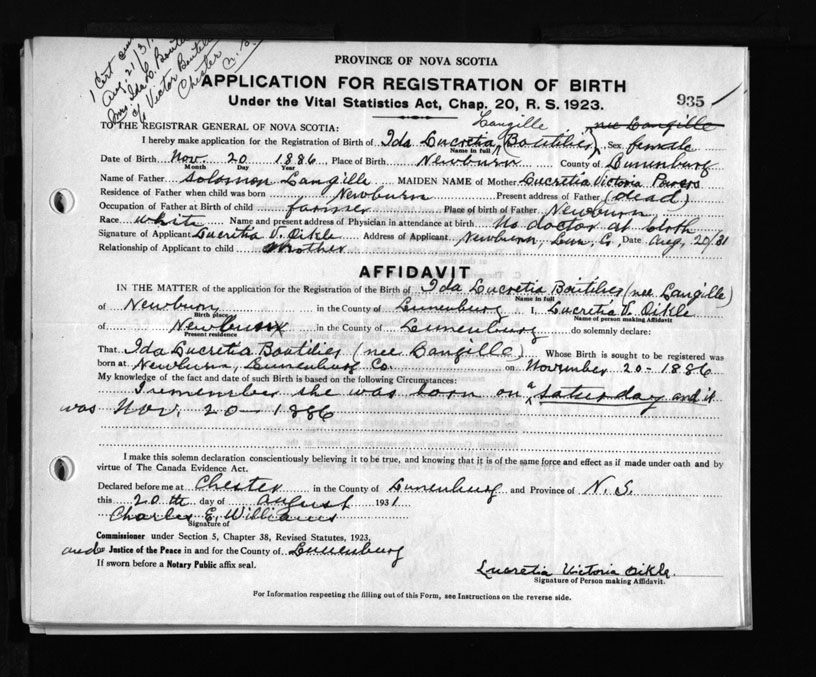 1 Cert
Aug 21/31
Mrs Ida L. Boutil
c/o Victor Boutil
Chester
N. S.
PROVINCE OF NOVA SCOTIA
APPLICATION FOR REGISTRATION OF BIRTH
935
Under the Vital Statistics Act, Chap. 20, R. S. 1923.
TO THE REGISTRAR GENERAL OF NOVA SCOTIA: Langille nee Langille
I hereby make application for the Registration of Birth of Ida Lucretia Boutilier, Sex female
Name in full
Date of Birth Nov. 20 1886 Place of Birth Newburn County of Lunenburg
Month Day Year
Name of Father Solomon Langille MAIDEN NAME of Mother Lucretia Victoria Powers
Residence of Father when child was born Newburn Present address of Father (dead)
Occupation of Father at Birth of child farmer Place of birth of Father Newburn
Race white Name and present address of Physician in attendance at birth No doctor at birth
Signature of Applicant Lucretia V. Oikle Address of Applicant Newburn, Lun. Co. Date Aug. 20/31
Relationship of Applicant to child Mother
AFFIDAVIT
IN THE MATTER of the application for the Registration of the Birth of Ida Lucretia Boutilier (nee Langille)
Name in full
of Newburn in the County of Lunenburg I, Lucretia V. Oikle
Birth place Name of person making Affidavit
of Newburn in the County of Lunenburg do solemnly declare:
Present residence
That Ida Lucretia Boutilier (nee Langille) Whose Birth is sought to be registered was
born at Newburn, Lunenburg Co. on November 20 - 1886
My knowledge of the fact and date of such Birth is based on the following Circumstances:
I remember she was born on a Saturday and it
was Nov. 20 - 1886
I make this solemn declaration conscientiously believing it to be true, and knowing that it is of the same force and effect as if made under oath and by
virtue of The Canada Evidence Act.
Declared before me at Chester in the County of Lunenburg and Province of N. S.
this 20th day of August 1931
Charles E. Williams
Signature of
Commissioner under Section 5, Chapter 38, Revised Statutes, 1923,
and Justice of the Peace in and for the County of Lunenburg
If sworn before a Notary Public affix seal.
Lucretia Victoria Oikle.
Signature of Person making Affidavit.
For Information respecting the filling out of this Form, see Instructions on the reverse side.